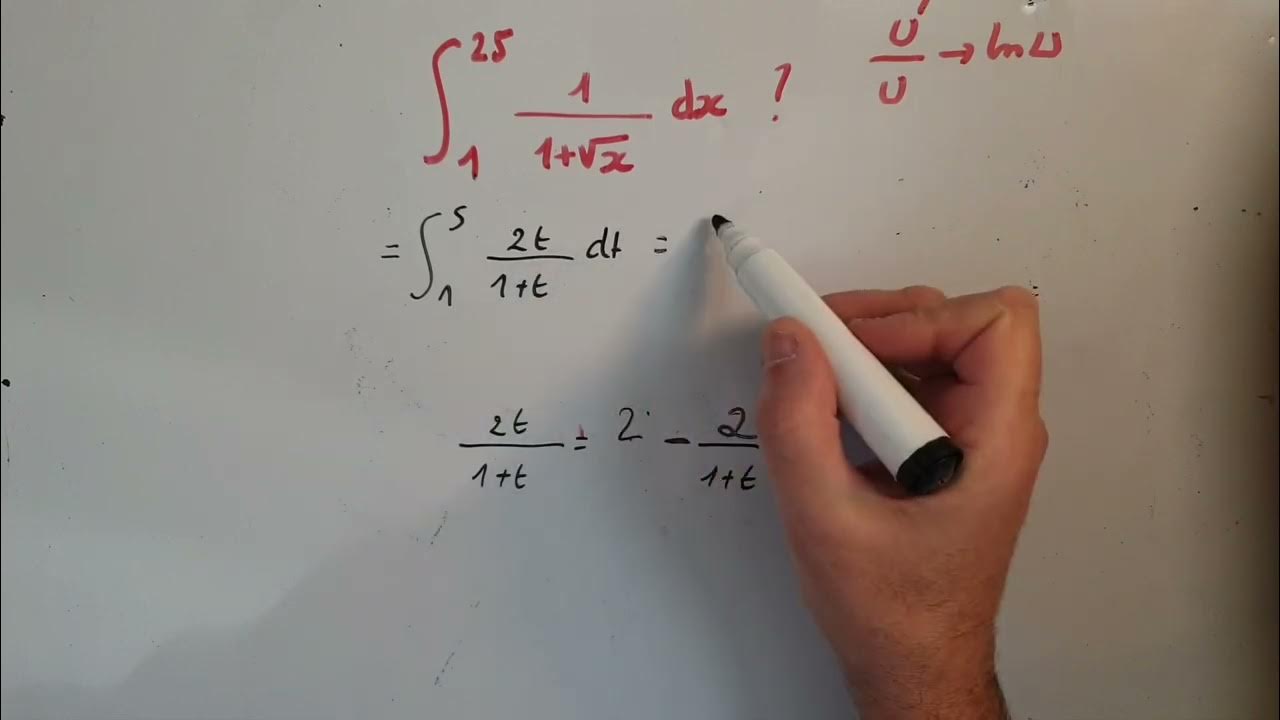 ∫₁²⁵ 1/(1+√x) dx ? U'/U → ln U
= ∫₁⁵ 2t/(1+t) dt =
2t/(1+t) = 2 - 2/(1+t)